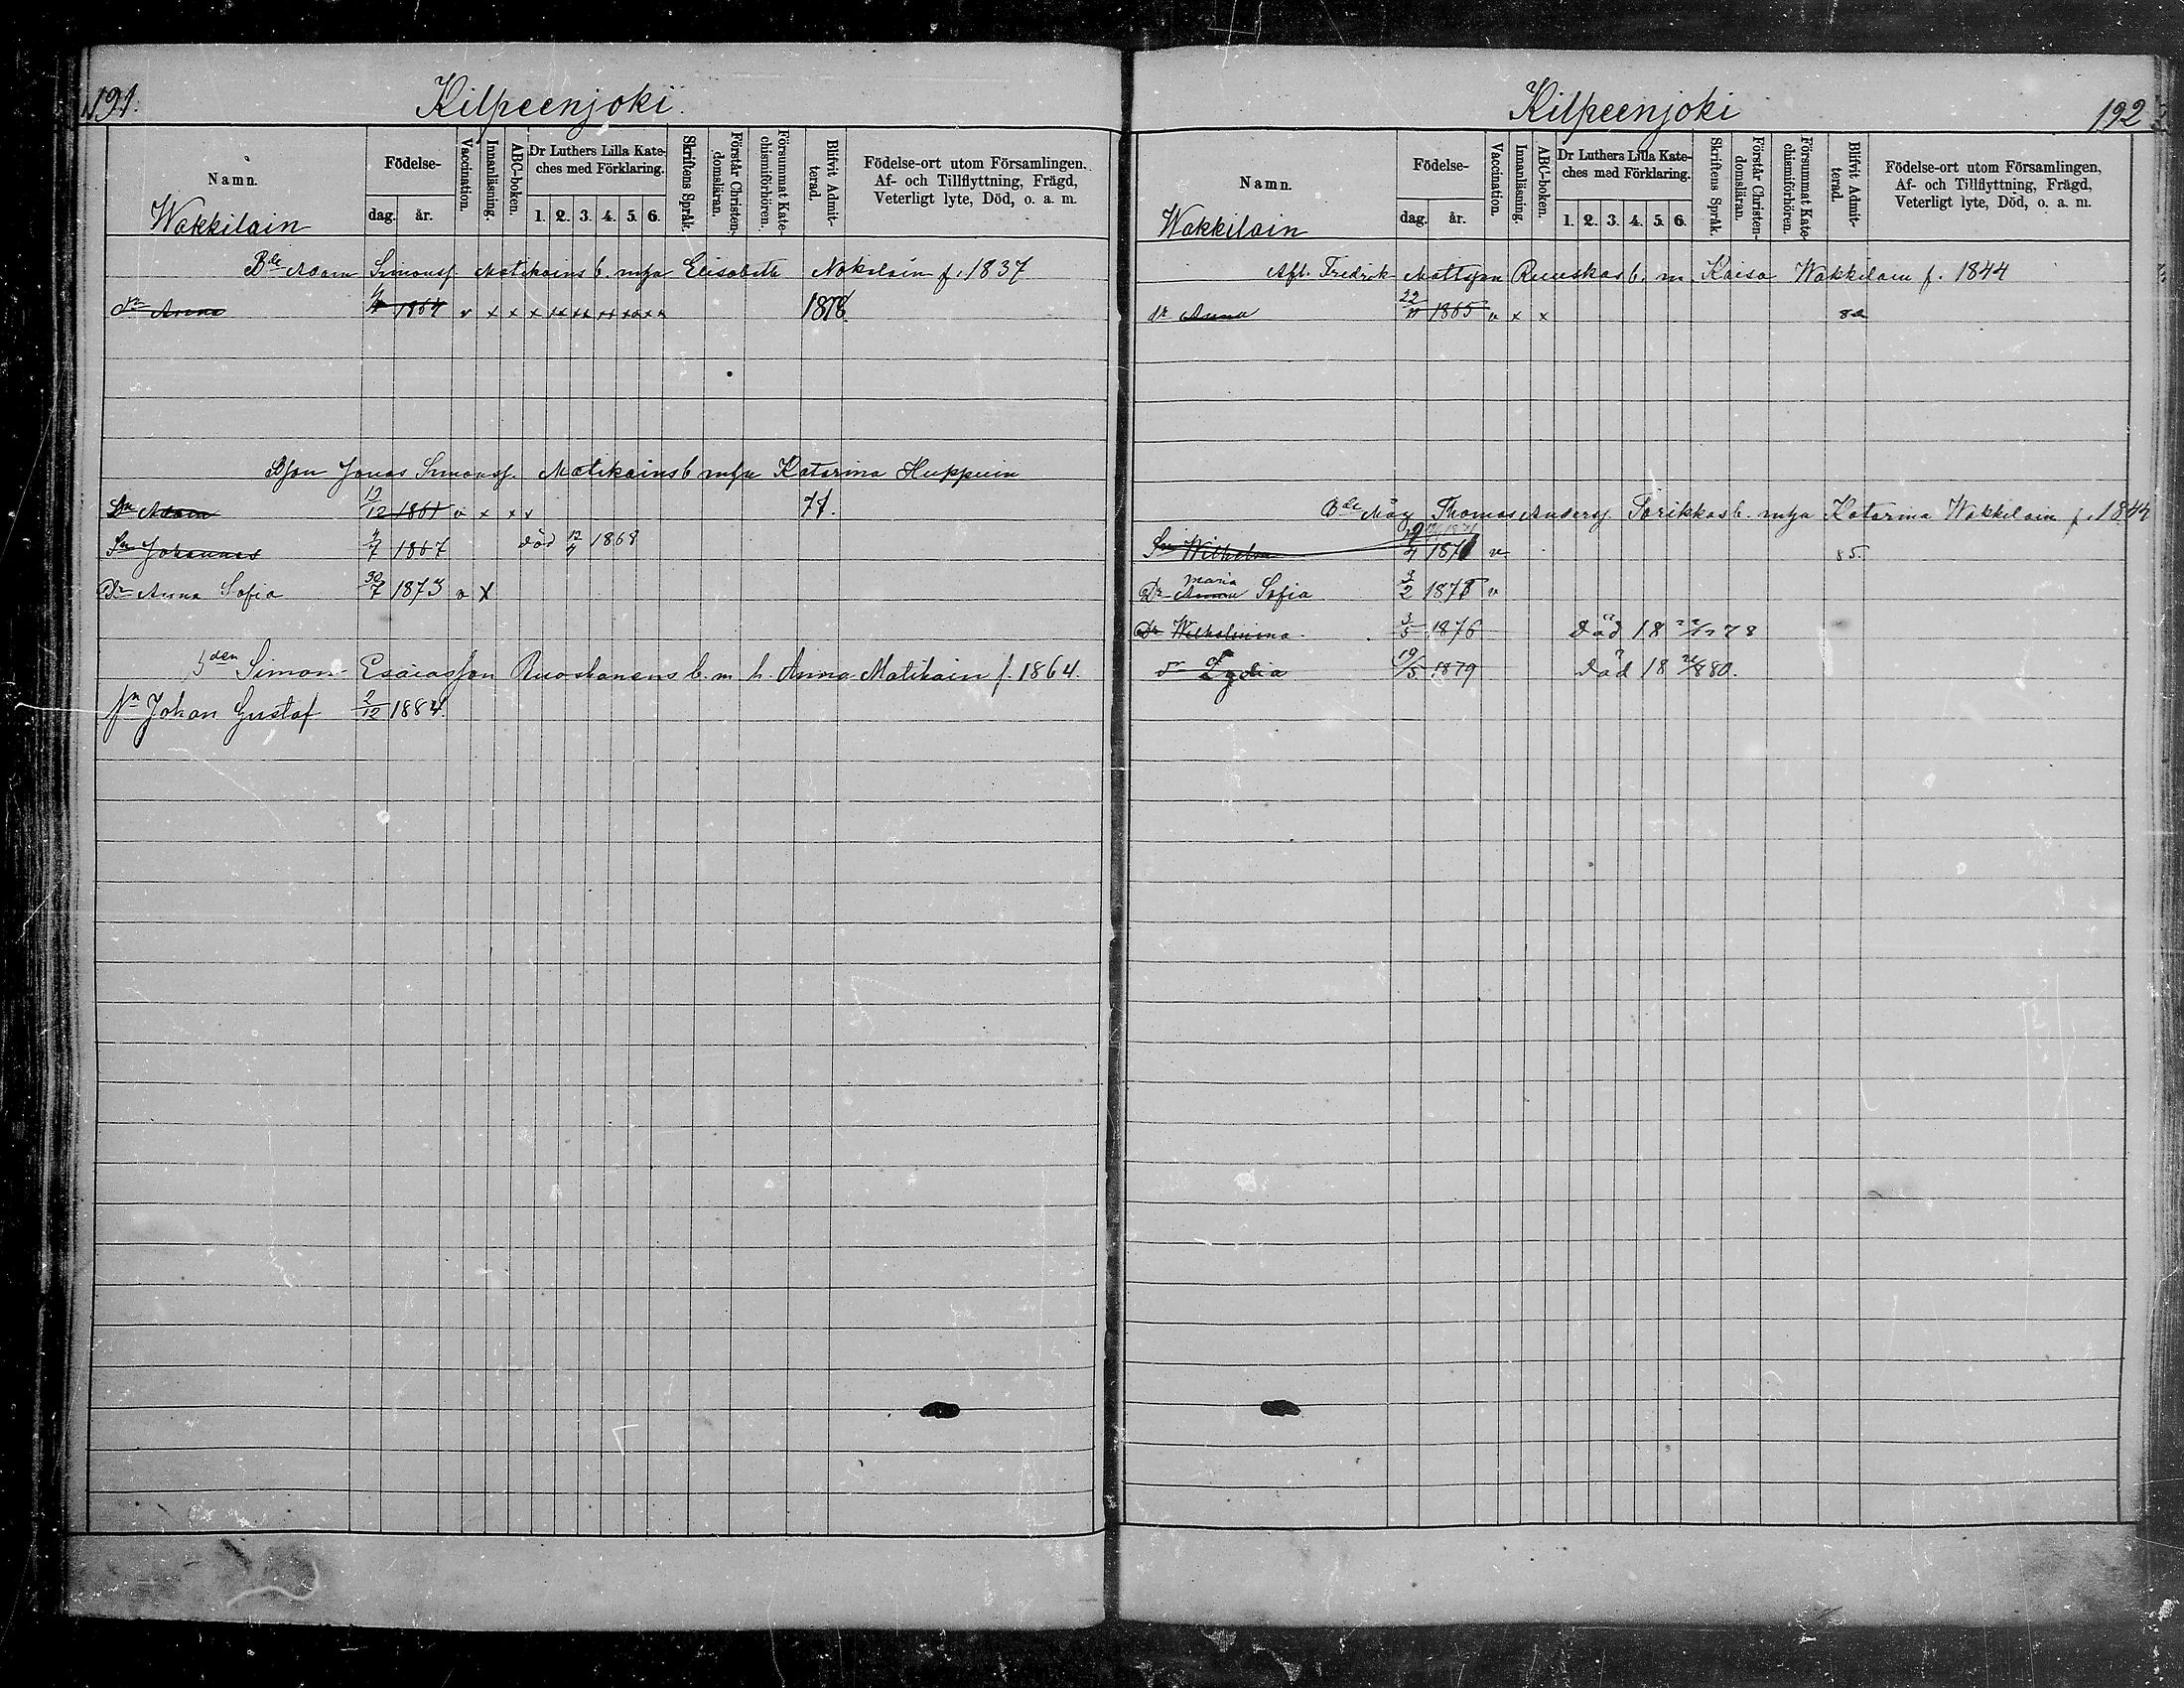 191.
Kilpeenjoki.
Namn.
Födelse-
dag.
år.
Vaccination.
Innanläsning.
ABC-boken.
Dr Luthers Lilla Kate-
ches med Förklaring.
1. 2. 3. 4. 5. 6.
Skriftens Språk.
Förstår Christen-
domsläran.
Försummat Kate-
chismiförhören.
Blifvit Admit-
terad.
Födelse-ort utom Församlingen.
Af- och Tillflyttning, Frägd,
Veterligt lyte, Död, o. a. m.
Wakkilain
Bde Adam Simonsf. Matikains b. m hu Elisabeth Nokelain f. 1837
Dr Anna 1864 v x x x xx xx xx xx x 1878
Jonas Simonsf. Matikains b m hu Katarina Huppuin
Sn Adam 19/12 1861 v x x x 77.
Sn Johannes 4/7 1867 död 12/4 1868
Dr Anna Sofia 30/7 1873 v x
Simon Esaiasson Ruoskanens b. m h. Anna Matikain f. 1864.
Sn Johan Gustaf 2/12 1884.
Kilpeenjoki
192
Namn.
Födelse-
dag.
år.
Vaccination.
Innanläsning.
ABC-boken.
Dr Luthers Lilla Kate-
ches med Förklaring.
1. 2. 3. 4. 5. 6.
Skriftens Språk.
Förstår Christen-
domsläran.
Försummat Kate-
chismiförhören.
Blifvit Admit-
terad.
Födelse-ort utom Församlingen,
Af- och Tillflyttning, Frägd,
Veterligt lyte, Död, o. a. m.
Wakkilain
Afl. Fredrik Mattsson Ruuskas b. m. Kaisa Wakkilain f. 1844
dr Anna 22/11 1865 v x x 82
Bde Måg Thomas Andersf. Torikkas b. m hu Katarina Wakkilain f. 1844
Sn Wilhelm 4 1871 v 85.
maria
Dr Anna Sofia 9/2 1875 v
Dr Wilhelmina 3/5 1876 Död 18 78
dr Lydia 19/5 1879 Död 18 80.